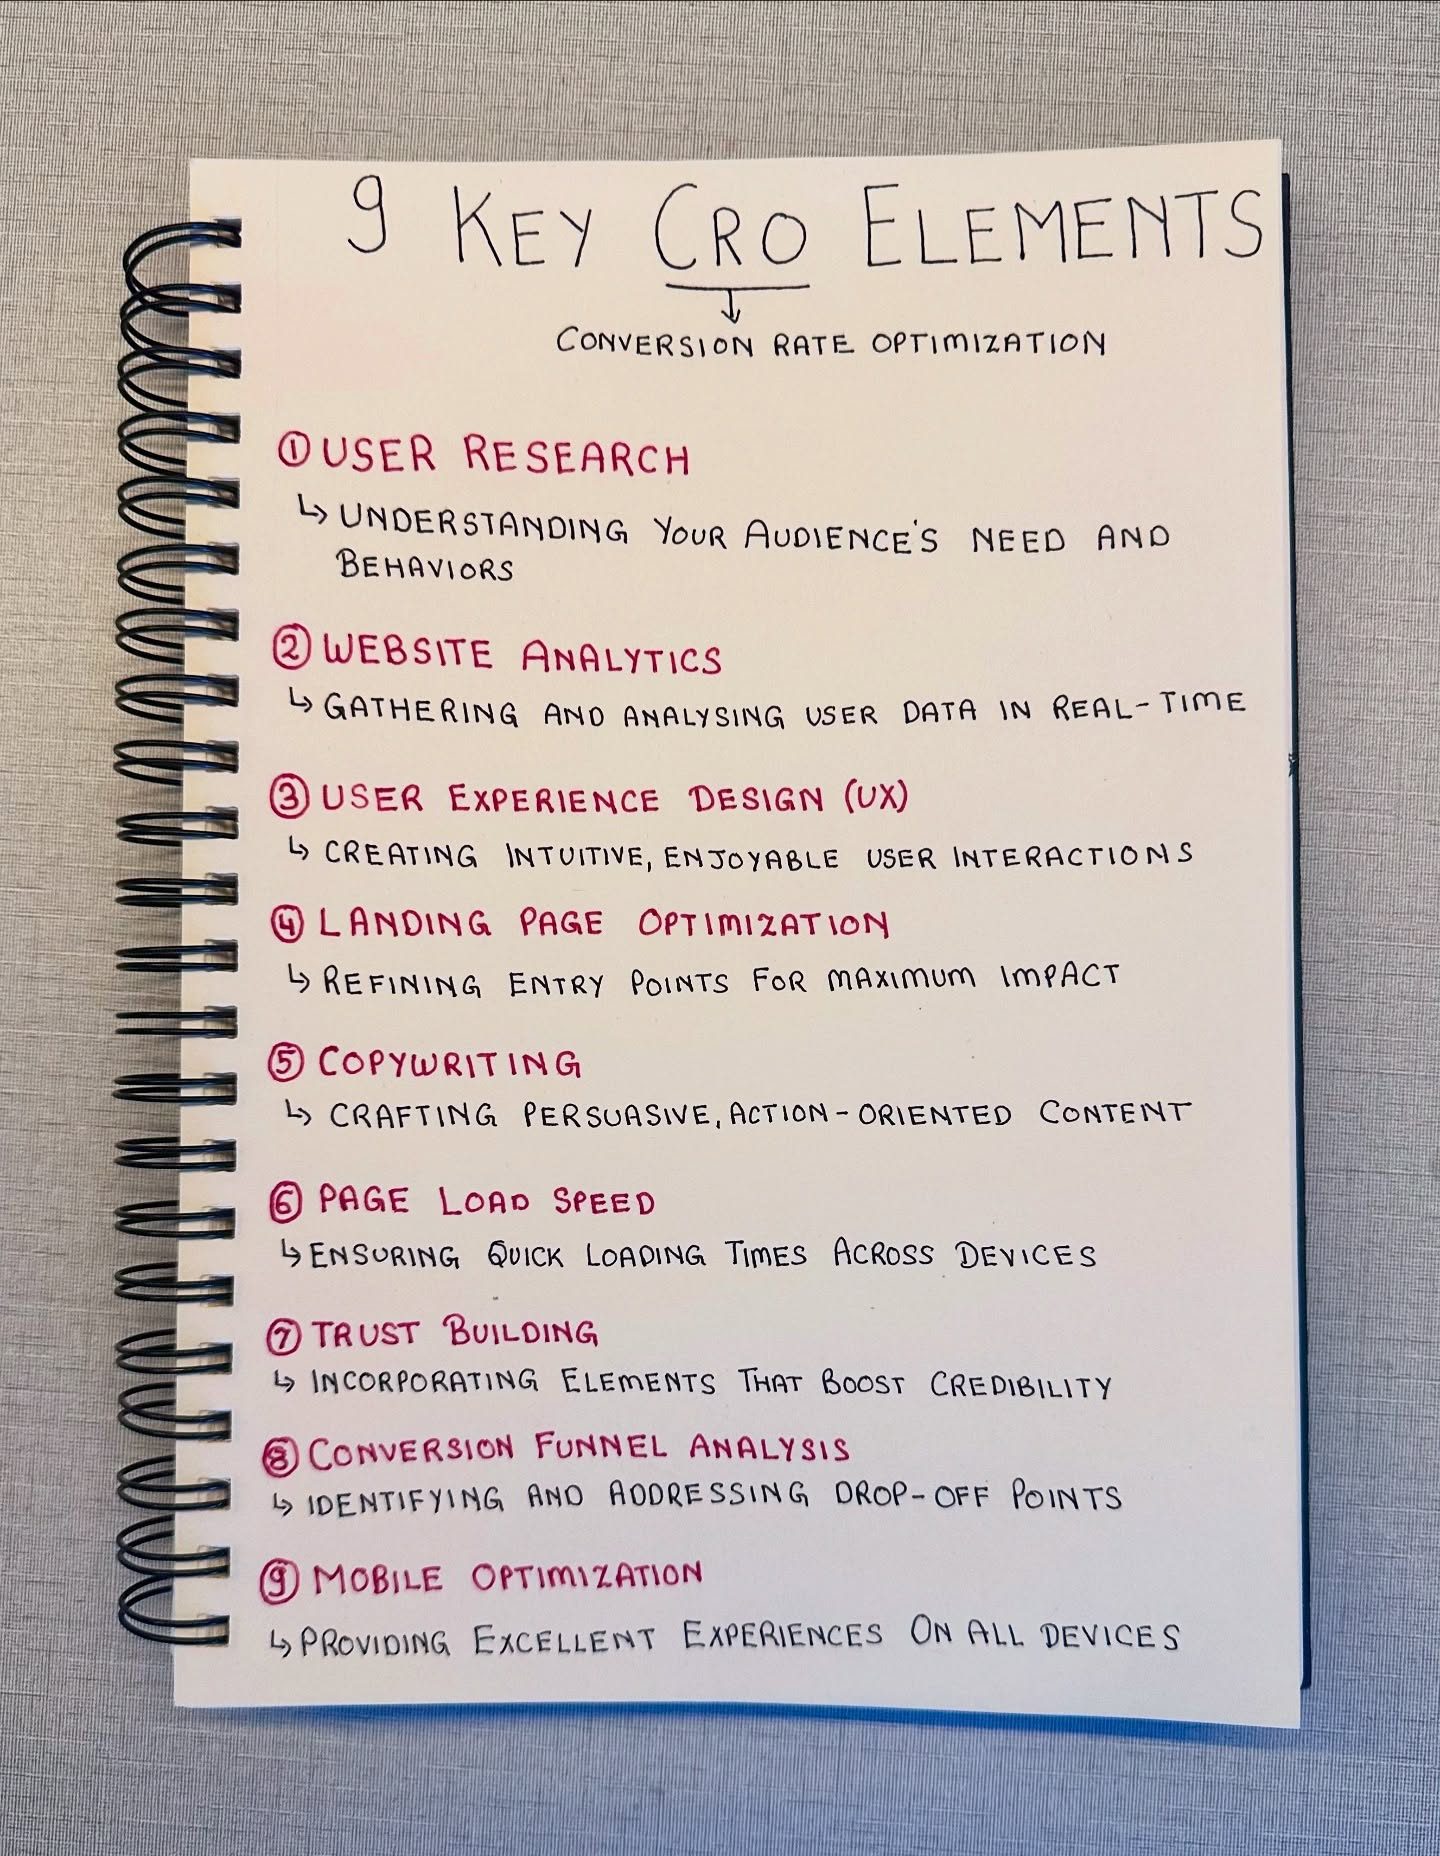 9 KEY CRO ELEMENTS
CONVERSION RATE OPTIMIZATION
① USER RESEARCH
↳ UNDERSTANDING YOUR AUDIENCE'S NEED AND
BEHAVIORS
② WEBSITE ANALYTICS
↳ GATHERING AND ANALYSING USER DATA IN REAL-TIME
③ USER EXPERIENCE DESIGN (UX)
↳ CREATING INTUITIVE, ENJOYABLE USER INTERACTIONS
④ LANDING PAGE OPTIMIZATION
↳ REFINING ENTRY POINTS FOR MAXIMUM IMPACT
⑤ COPYWRITING
↳ CRAFTING PERSUASIVE, ACTION-ORIENTED CONTENT
⑥ PAGE LOAD SPEED
↳ ENSURING QUICK LOADING TIMES ACROSS DEVICES
⑦ TRUST BUILDING
↳ INCORPORATING ELEMENTS THAT BOOST CREDIBILITY
⑧ CONVERSION FUNNEL ANALYSIS
↳ IDENTIFYING AND ADDRESSING DROP-OFF POINTS
⑨ MOBILE OPTIMIZATION
↳ PROVIDING EXCELLENT EXPERIENCES ON ALL DEVICES